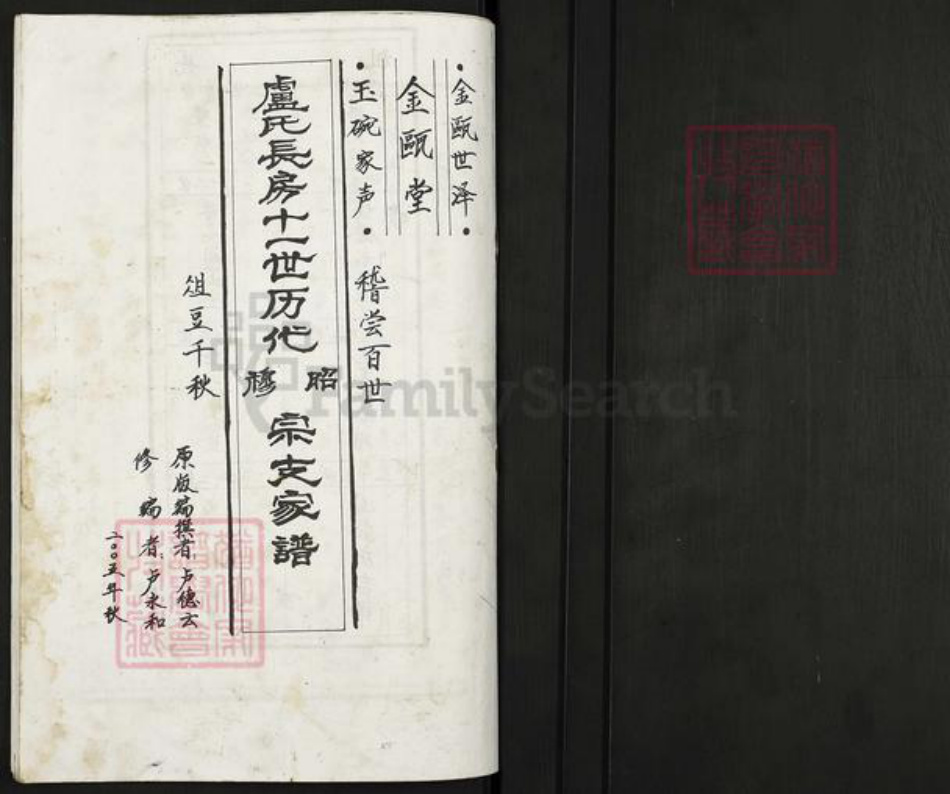 金甌世泽
金甌堂
玉碗家声
稽尝百世
盧氏長房十一世历代昭穆宗支家譜
俎豆千秋
原版编撰者:卢德云
修编者:卢永和
二〇〇五年秋
FamilySearch